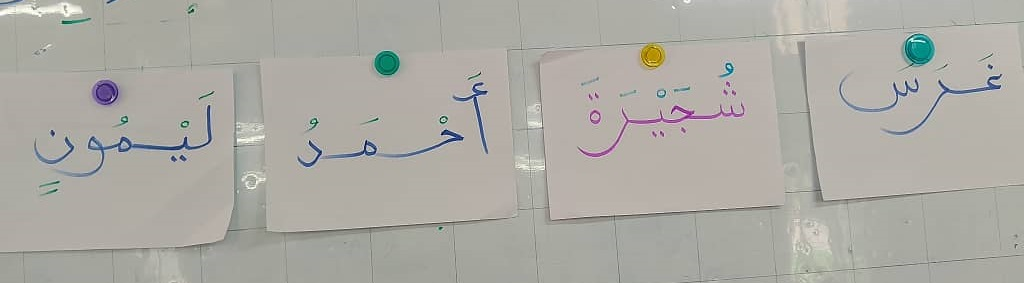 غَرَسَ شُجَيْرَةَ أَحْمَدُ لَيْمُونٍ